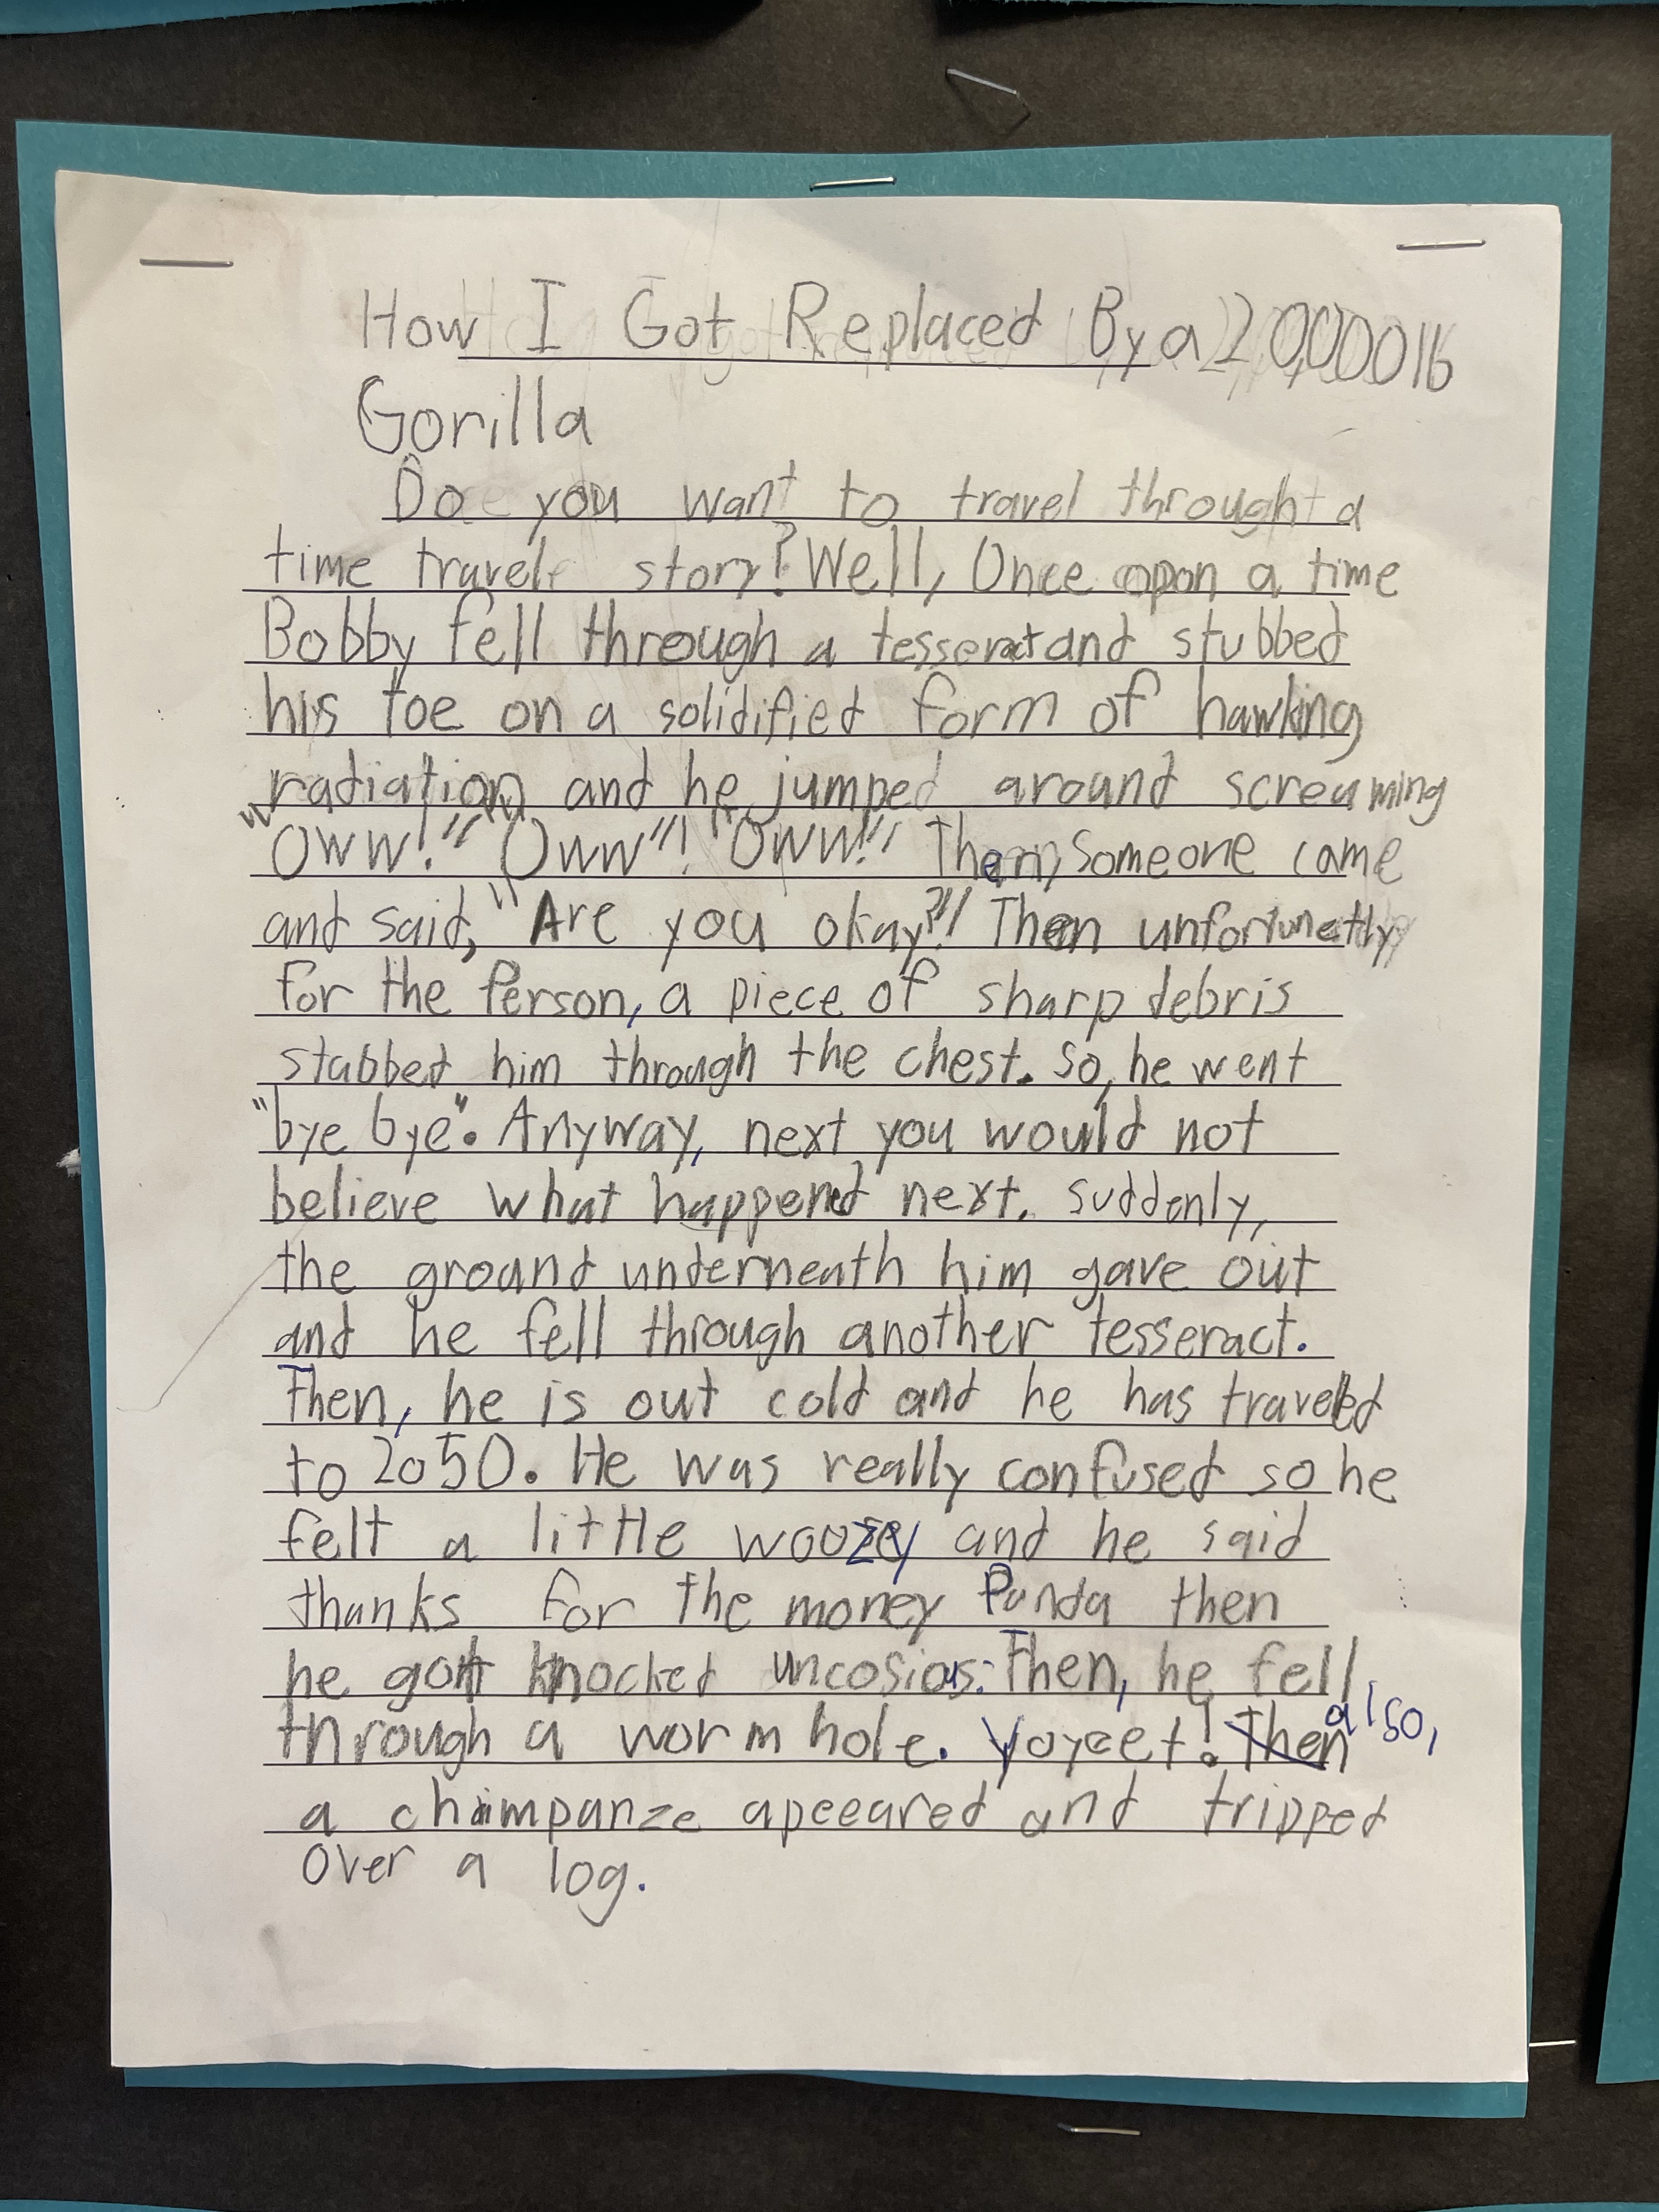 How I Got Replaced By a 200000lb
Gorilla
Do you want to travel throught a
time travel story? Well, Once opon a time
Bobby fell through a tesseract and stubbed
his toe on a solidified form of hawking
radiation and he jumped around screaming
"OWW!" "Oww"! "OWW!" Then, Someone came
and said, "Are you okay?"! Then unfortunetly
for the Person, a piece of sharp debris
stabbed him through the chest. So, he went
"bye bye". Anyway, next you would not
believe what happened next. suddenly,
the ground underneath him gave out
and he fell through another tesseract.
Then, he is out cold and he has traveled
to 2050. He was really confused so he
felt a little woozey and he said
thanks for the money Panda then
he gott knocked uncosious. Then, he fell
through a worm hole. Yoyeet! Then also,
a chimpanze apeeared and tripped
over a log.